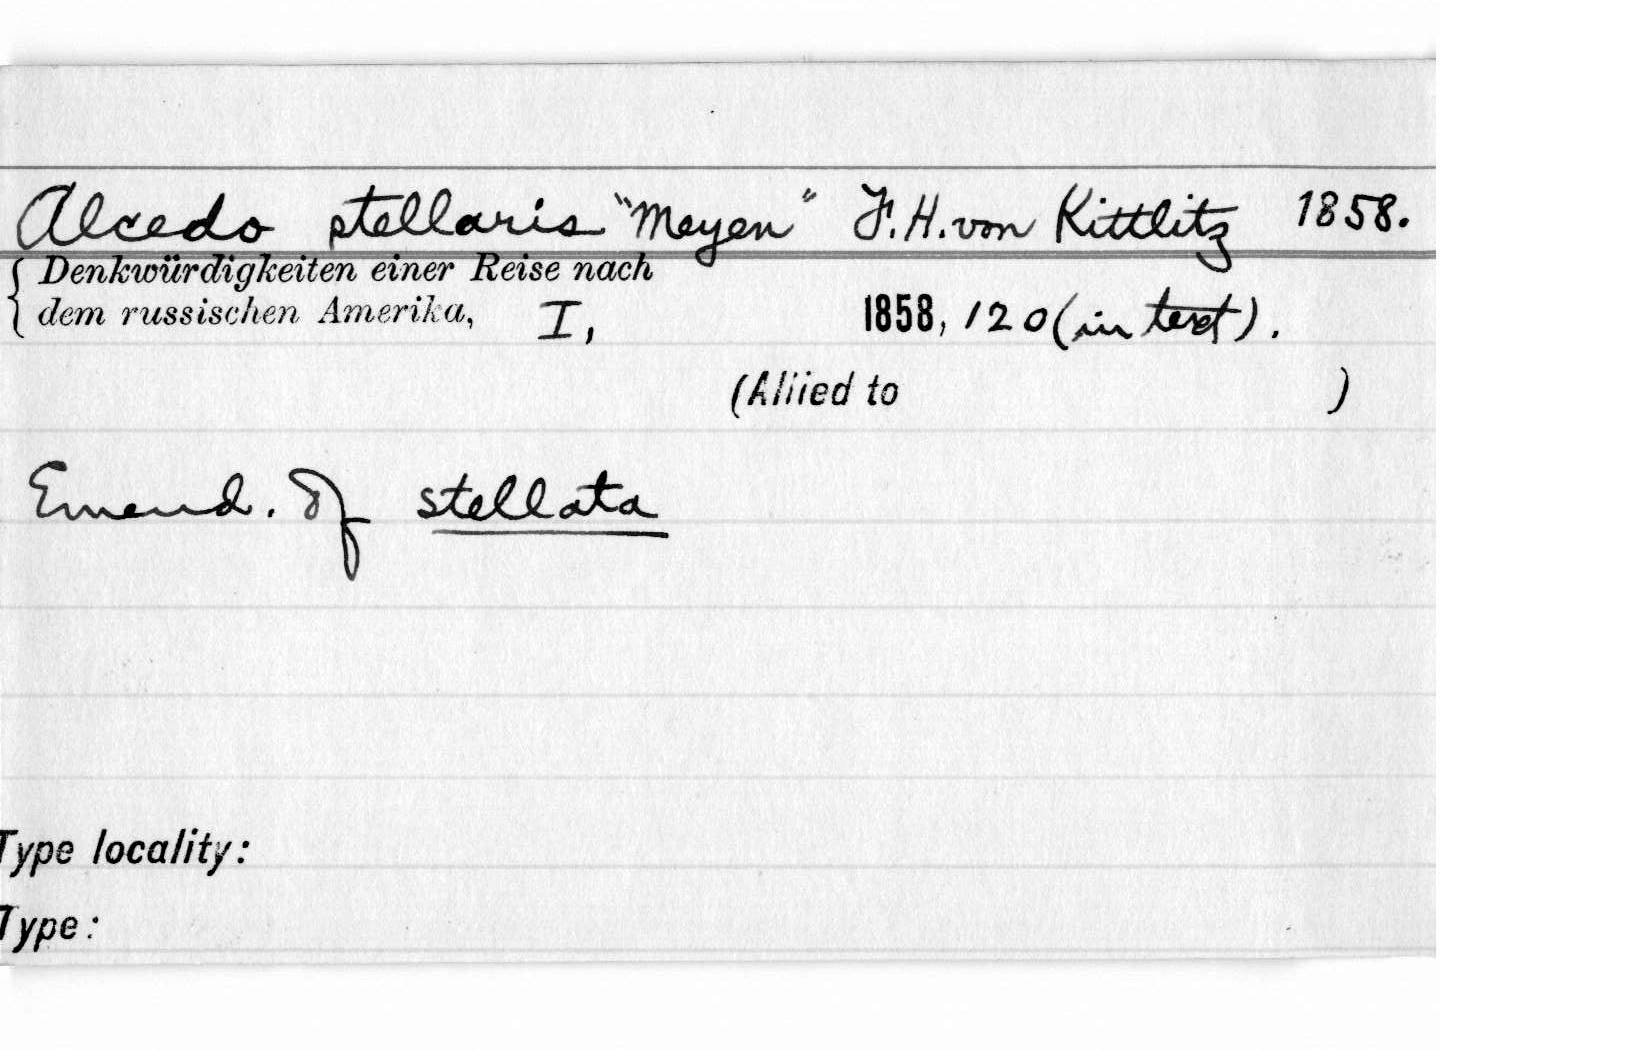 Alcedo stellaris "Meyen" F. H. von Kittlitz 1858.
Denkwürdigkeiten einer Reise nach
dem russischen Amerika, I, 1858, 120 (in text).
(Allied to )
Emend. of stellata
Type locality:
Type: